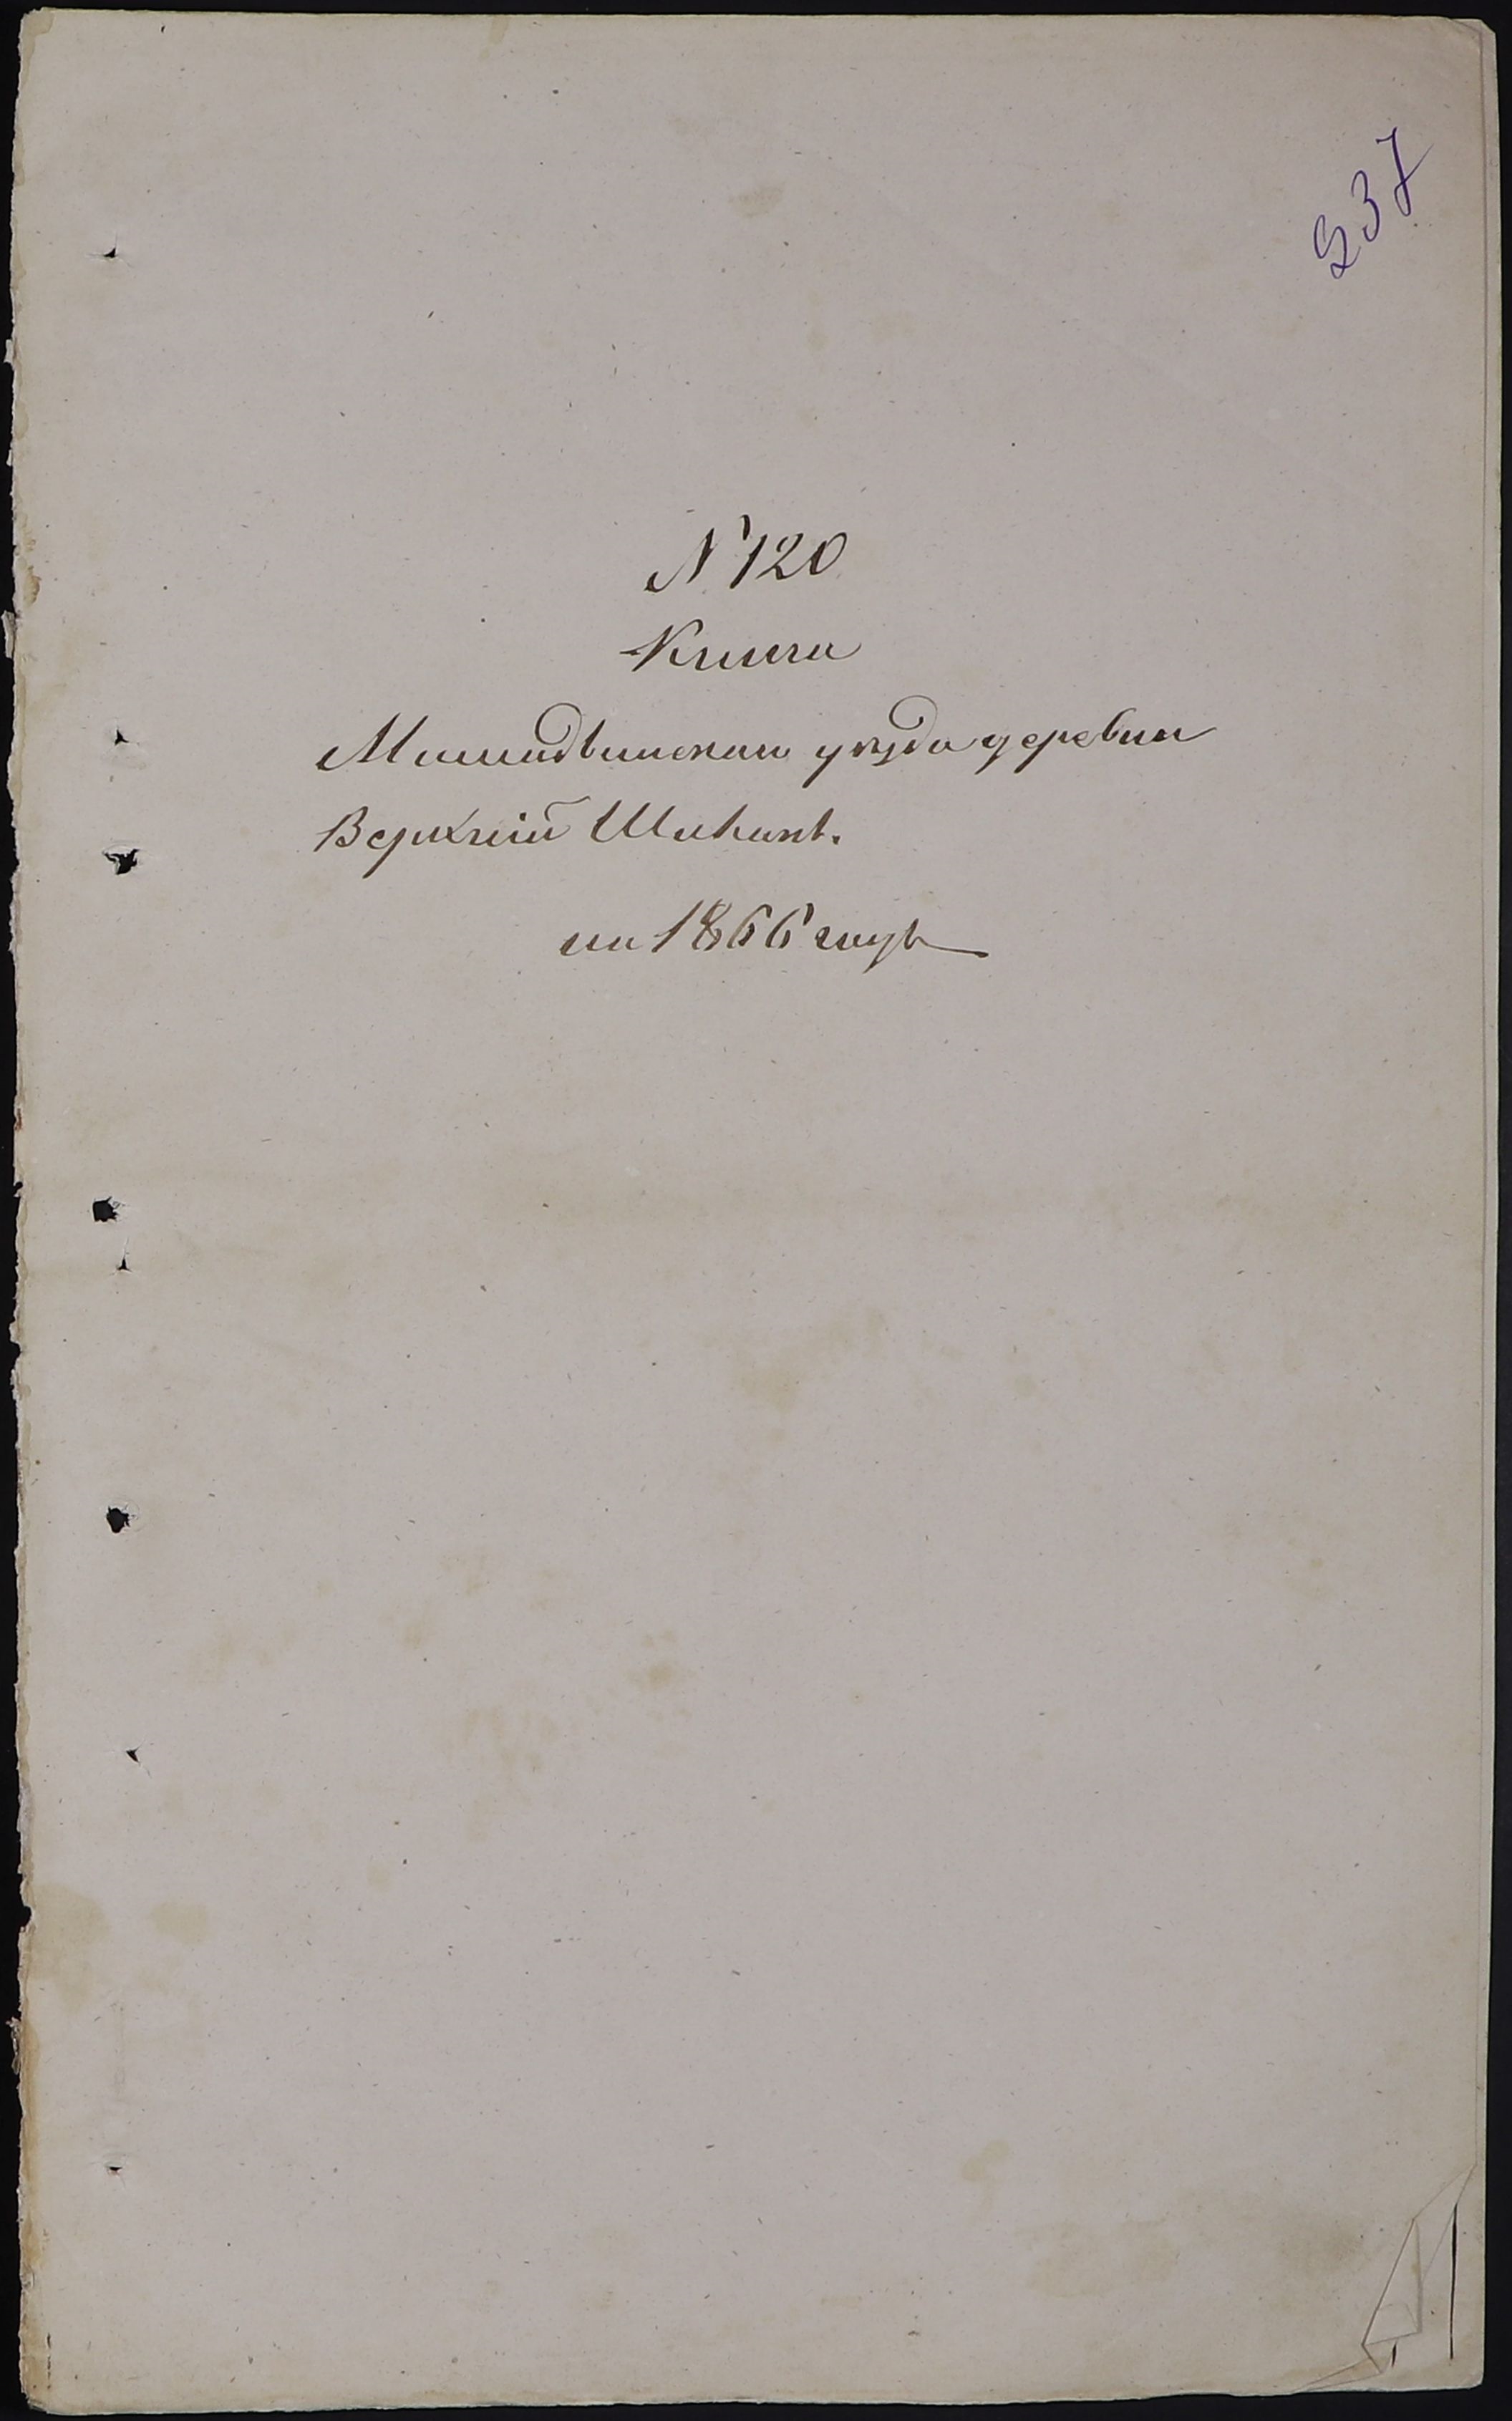 237
N 120
Книга
Мамадышскаго уѣзда деревни
Верхній Шикинъ.
на 1866 годъ